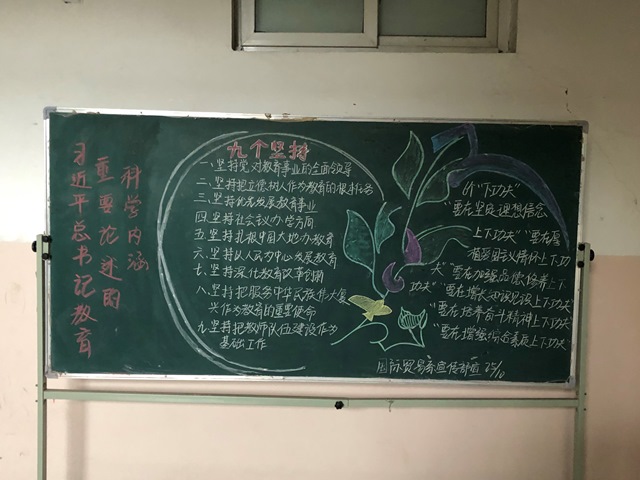 习近平总书记教育
重要论述的
科学内涵
九个坚持
一、坚持党对教育事业的全面领导
二、坚持把立德树人作为教育的根本任务
三、坚持优先发展教育事业
四、坚持社会主义办学方向
五、坚持扎根中国大地办教育
六、坚持以人民为中心发展教育
七、坚持深化教育改革创新
八、坚持把服务中华民族伟大复
兴作为教育的重要使命
九、坚持把教师队伍建设作为
基础工作
六个"下功夫"
"要在坚定理想信念
上下功夫""要在厚
植爱国主义情怀上下功
夫""要在加强品德修养上下
功夫""要在增长知识见识上下功夫"
"要在培养奋斗精神上下功夫"
"要在增强综合素质上下功夫"
国际贸易系宣传部宣 25/10